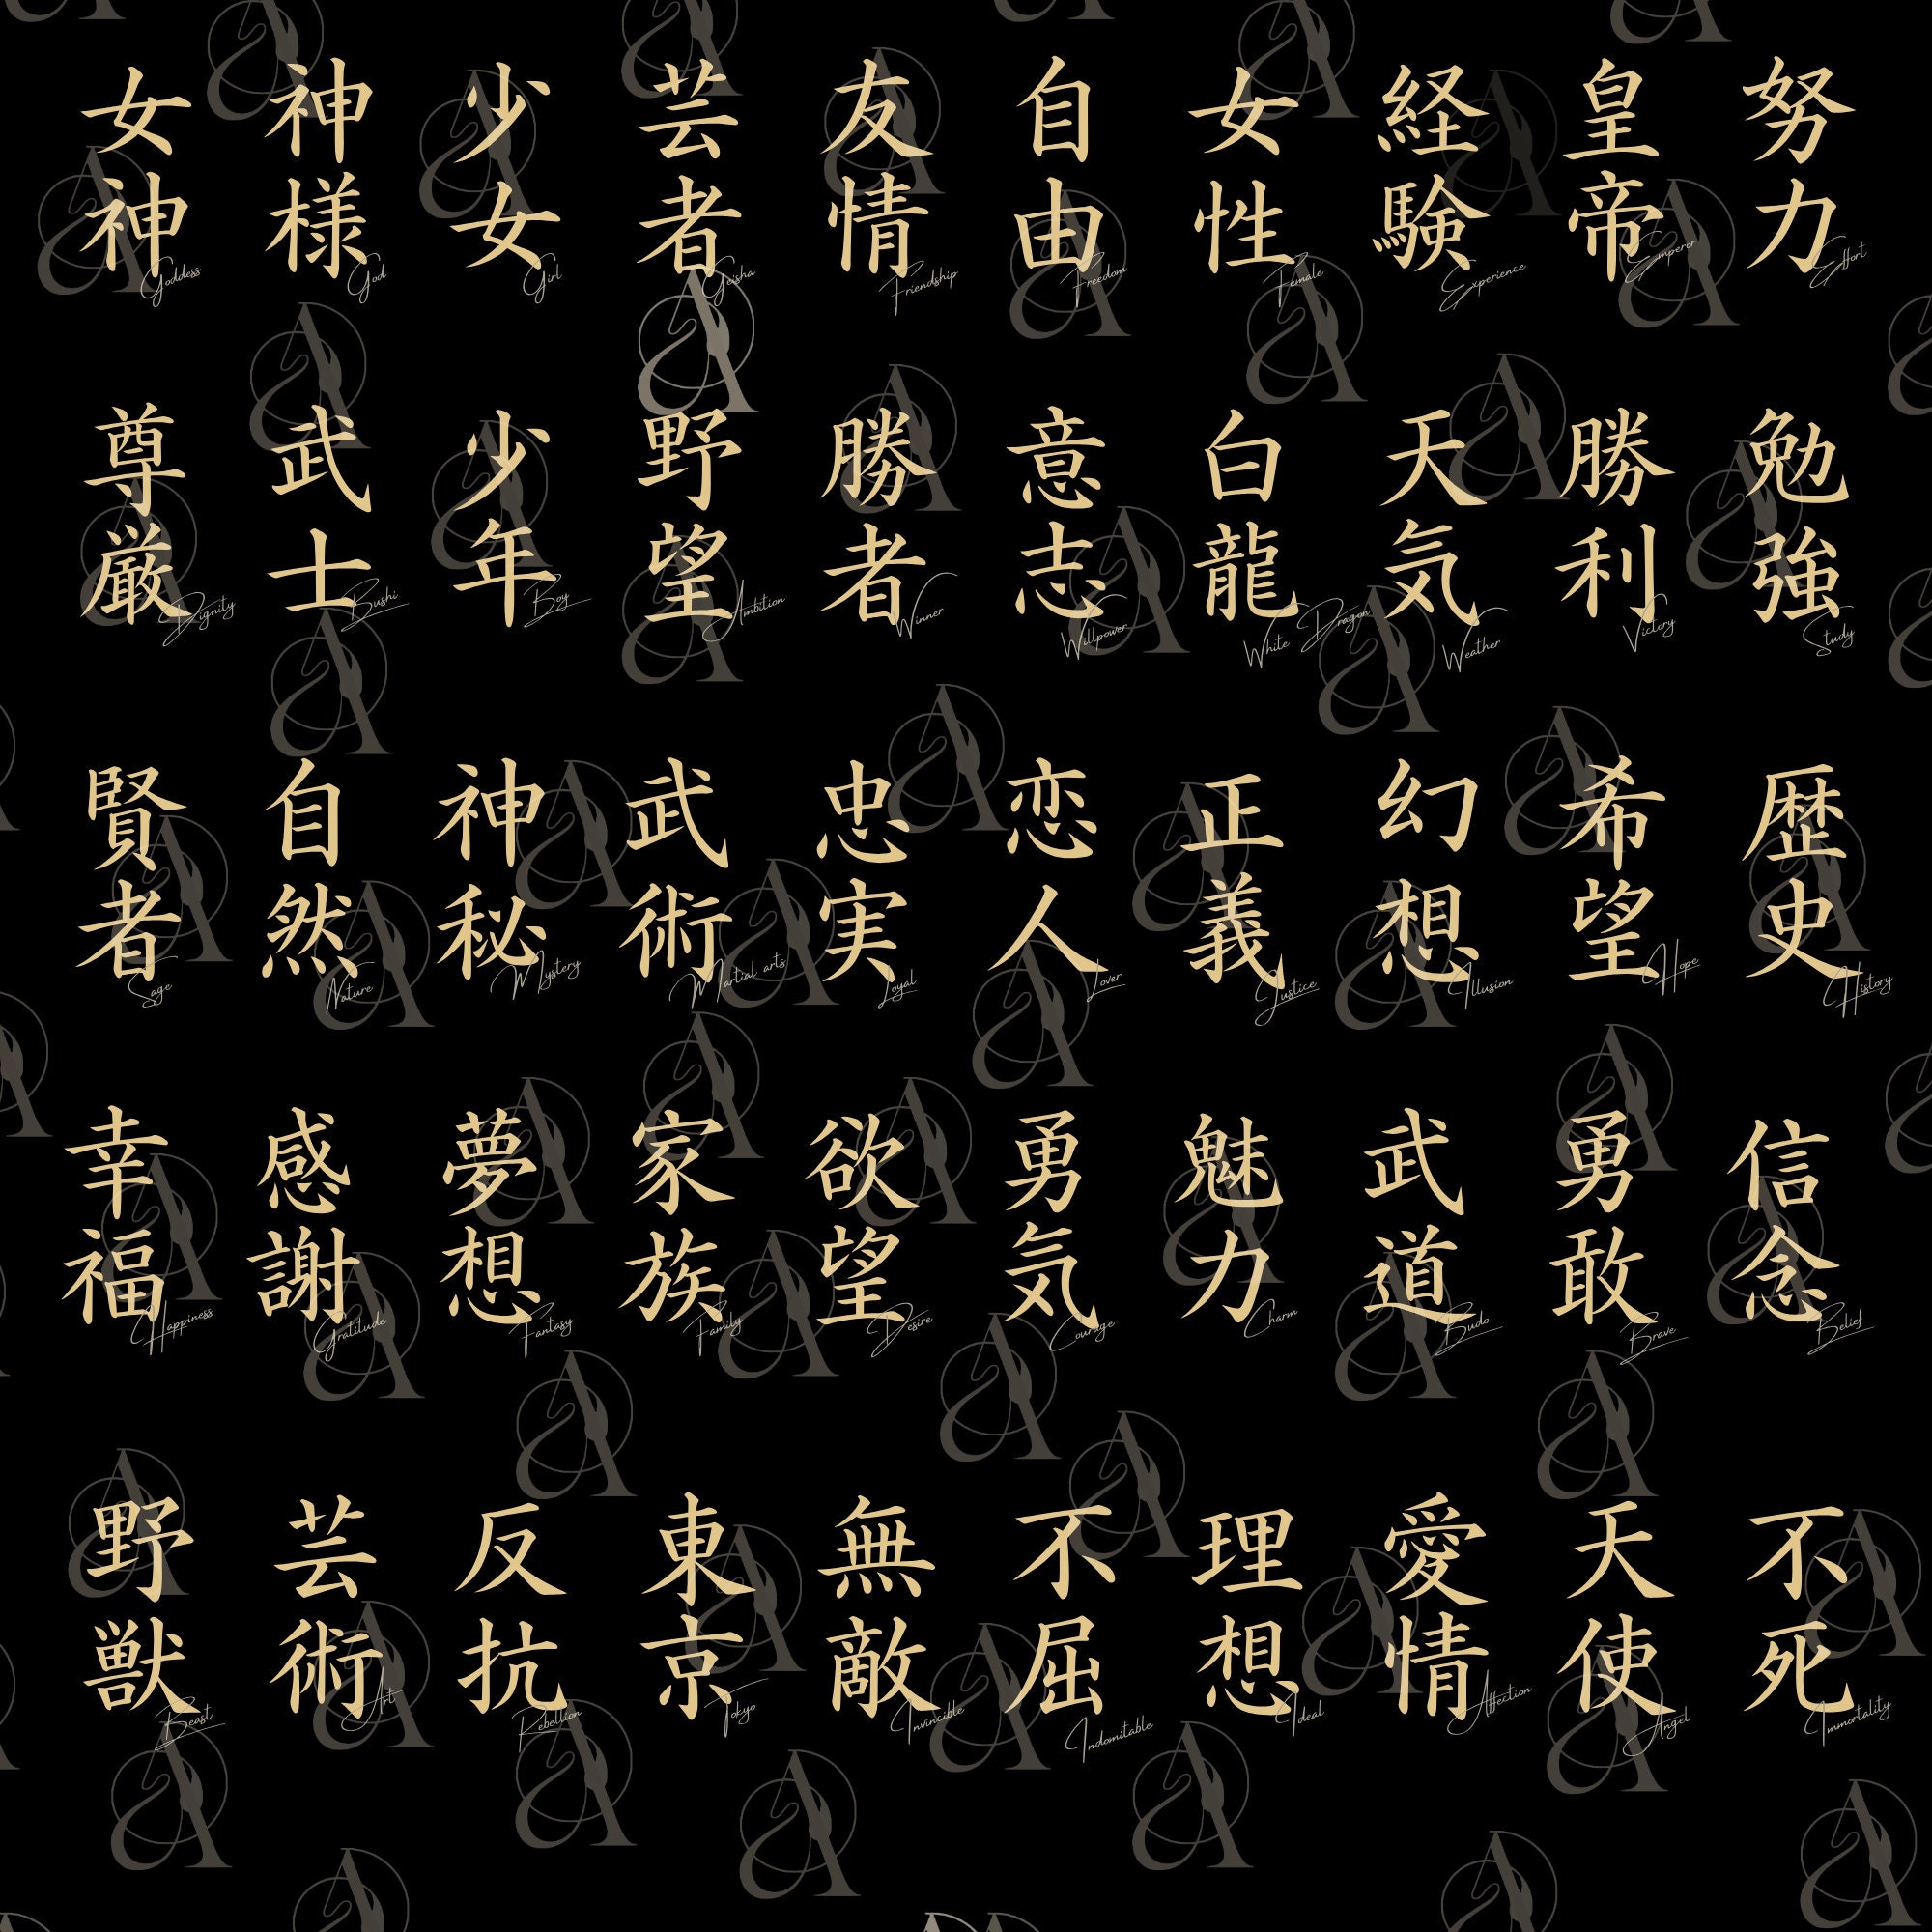 女神
Goddess
神様
God
少女
Girl
芸者
Geisha
友情
Friendship
自由
Freedom
女性
Female
経験
Experience
皇帝
Emperor
努力
Effort
尊厳
Dignity
武士
Bushi
少年
Boy
野望
Ambition
勝者
Winner
意志
Willpower
白龍
White Dragon
天気
Weather
勝利
Victory
勉強
Study
賢者
Sage
自然
Nature
神秘
Mystery
武術
Martial arts
忠実
Loyal
恋人
Lover
正義
Justice
幻想
Illusion
希望
Hope
歴史
History
幸福
Happiness
感謝
Gratitude
夢想
Fantasy
家族
Family
欲望
Desire
勇気
Courage
魅力
Charm
武道
Budo
勇敢
Brave
信念
Belief
野獣
Beast
芸術
Art
反抗
Rebellion
東京
Tokyo
無敵
Invincible
不屈
Indomitable
理想
Ideal
愛情
Affection
天使
Angel
不死
Immortality